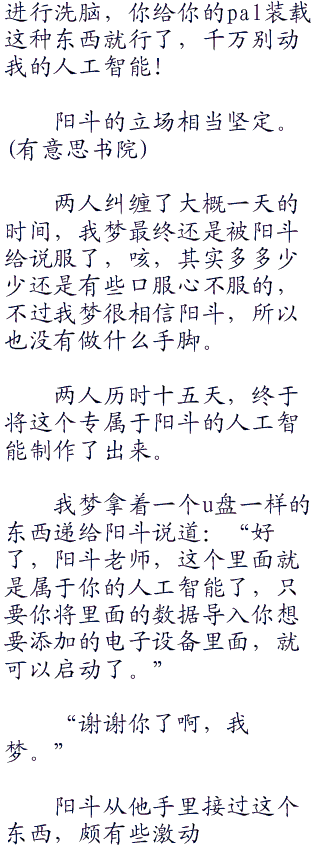 进行洗脑，你给你的pal装载
这种东西就行了，千万别动
我的人工智能！
阳斗的立场相当坚定。
(有意思书院)
两人纠缠了大概一天的
时间，我梦最终还是被阳斗
给说服了，咳，其实多多少
少还是有些口服心不服的，
不过我梦很相信阳斗，所以
也没有做什么手脚。
两人历时十五天，终于
将这个专属于阳斗的人工智
能制作了出来。
我梦拿着一个u盘一样的
东西递给阳斗说道：“好
了，阳斗老师，这个里面就
是属于你的人工智能了，只
要你将里面的数据导入你想
要添加的电子设备里面，就
可以启动了。”
“谢谢你了啊，我
梦。”
阳斗从他手里接过这个
东西，颇有些激动